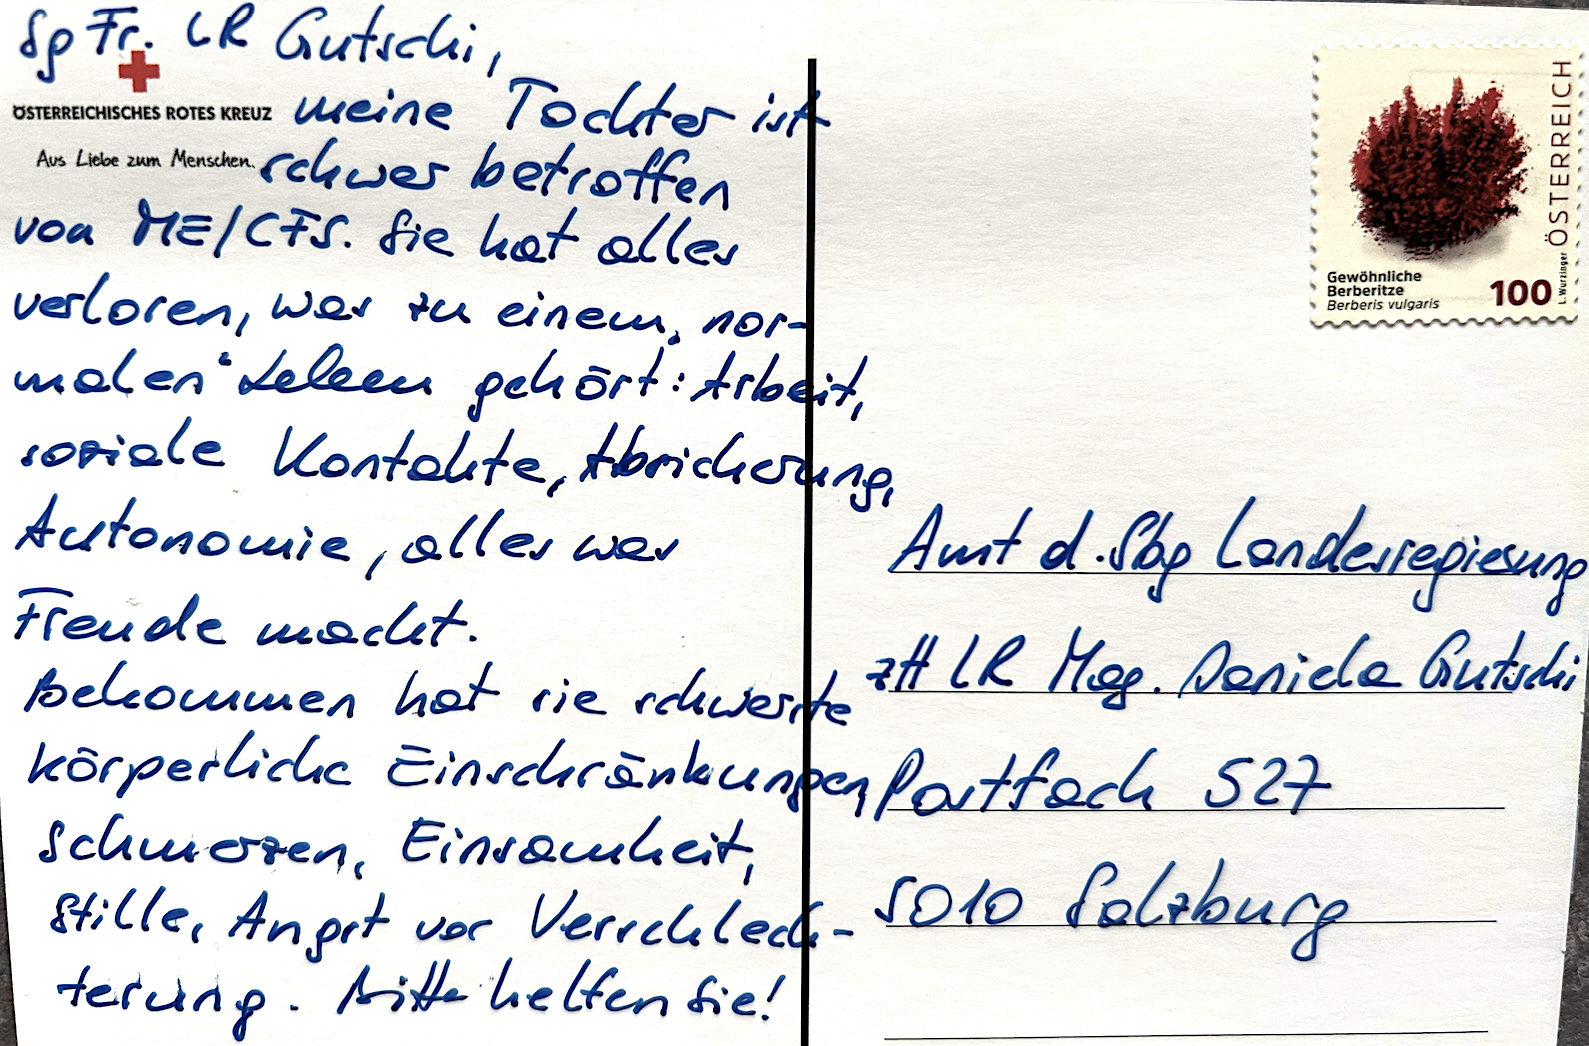 Sg Fr. LR Gutschi,
ÖSTERREICHISCHES ROTES KREUZ
Aus Liebe zum Menschen.
meine Tochter ist
schwer betroffen
von ME/CFS. Sie hat alles
verloren, was zu einem „nor-
malen" Leben gehört: Arbeit,
soziale Kontakte, Absicherung,
Autonomie, alles was
Freude macht.
Bekommen hat sie schwerste
körperliche Einschränkungen,
Schmerzen, Einsamkeit,
Stille, Angst vor Verschlech-
terung. Bitte helfen Sie!
Gewöhnliche
Berberitze
Berberis vulgaris
100
L. Wurzinger
ÖSTERREICH
Amt d. Sbg Landesregierung
zH LR Mag. Daniela Gutschi
Postfach 527
5010 Salzburg